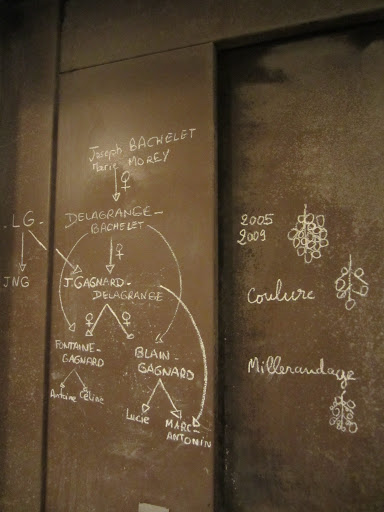 Joseph BACHELET
Marie MOREY
♀
-LG-
DELAGRANGE-
BACHELET
♀
JNG
J.GAGNARD-
DELAGRANGE
♀ ♀
FONTAINE-
GAGNARD
BLAIN-
GAGNARD
Antoine Céline
Lucie
MARC-
ANTONIN
2005
2009
Coulure
Millerandage